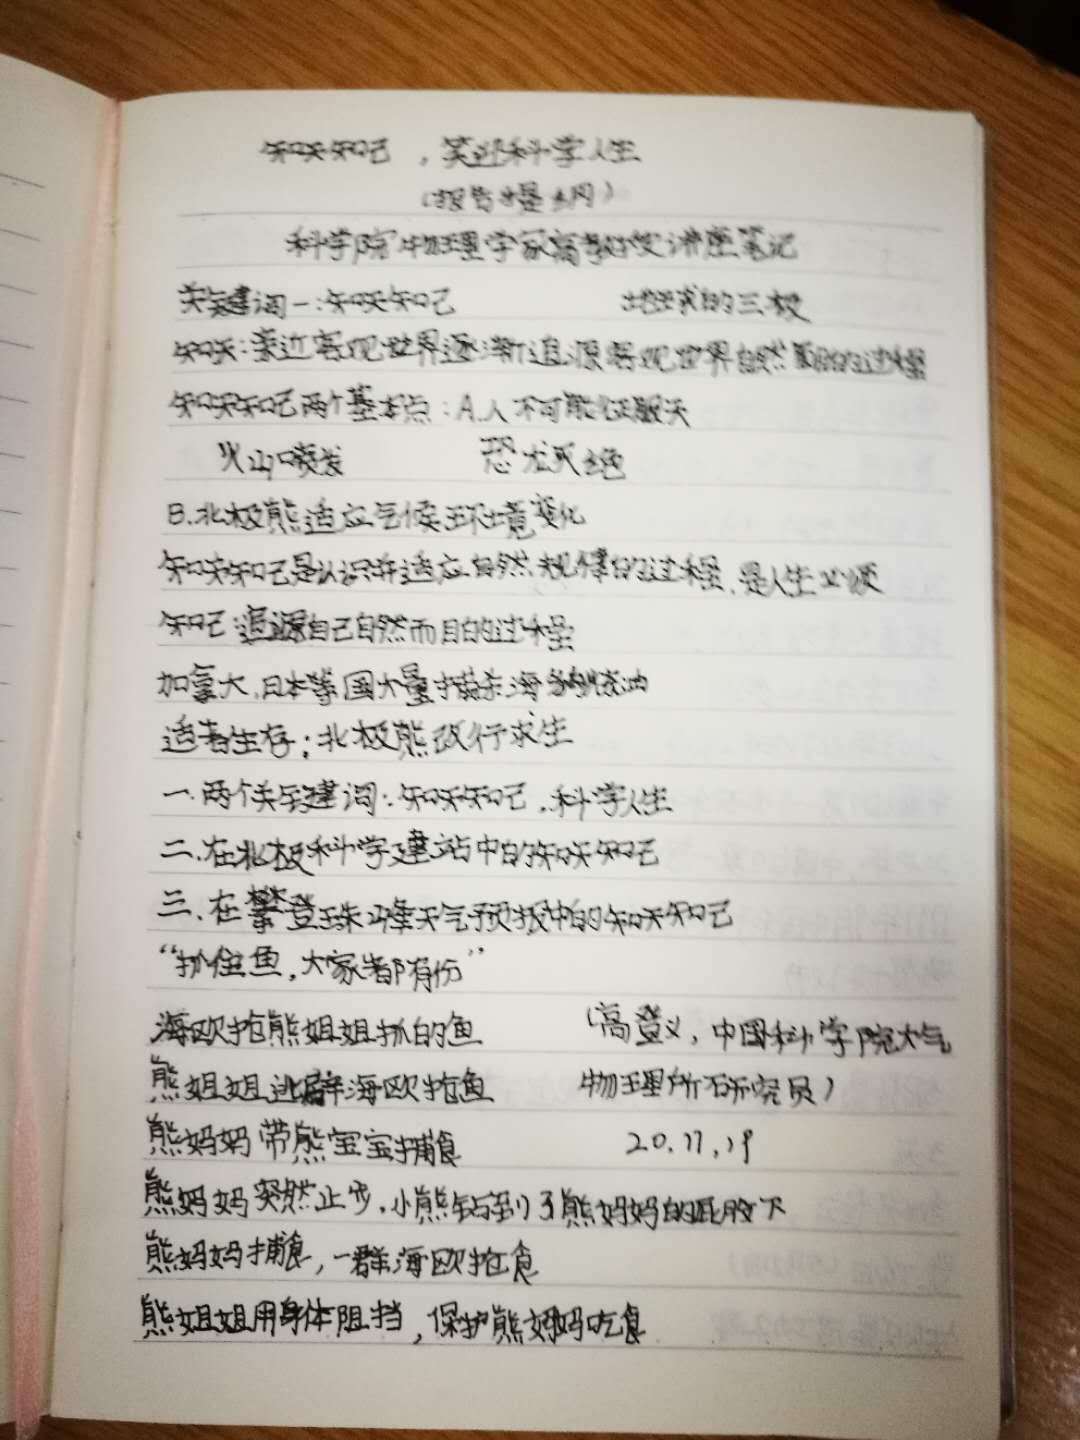 知天知己，笑迎科学人生
（报告提纲）
科学院物理学家高教授讲座笔记
关键词一：知天知己 地球的三极
知天：亲近客观世界逐渐追源客观世界自然面目的过程
知天知己两个基本点：A.人不可能征服天
火山喷发 恐龙灭绝
B.北极熊适应气候环境变化
知天知己是认识并适应自然规律的过程，是人生必须
知己：追源自己自然面目的过程
加拿大、日本等国大量捕杀海豹炼油
适者生存：北极熊改行求生
一.两个关键词：知天知己，科学人生
二.在北极科学建站中的知天知己
三.在攀登珠峰天气预报中的知天知己
“抓住鱼，大家都有份”
海欧抢熊姐姐抓的鱼 （高登义，中国科学院大气
熊姐姐逃避海欧抢鱼 物理所研究员）
熊妈妈带熊宝宝捕食 20.11.19
熊妈妈突然止步，小熊钻到了熊妈妈的屁股下
熊妈妈捕食，一群海欧抢食
熊姐姐用身体阻挡，保护熊妈妈吃食